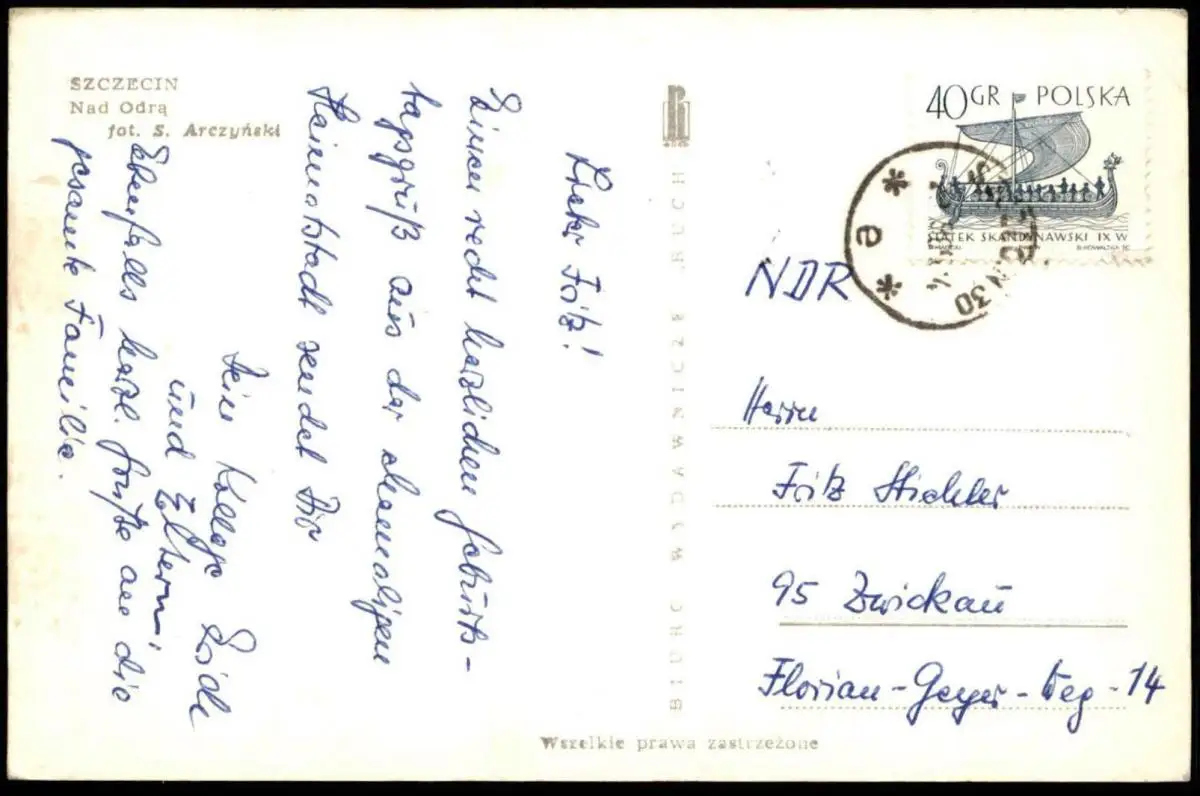 SZCZECIN
Nad Odrą
fot. S. Arczyński
Lieber Fritz!
Einen recht herzlichen Geburts-
tagsgruß aus der ehemaligen
Heimatstadt sendet Dir
Dein Kollege
und Eltern!
Ebenfalls herzl. Grüße an die
gesamte Familie.
BIURO WYDAWNICZE RUCH
40GR POLSKA
STATEK SKANDYNAWSKI IX W
30
e
NDR
Herrn
Fritz
95 Zwickau
Florian-Geyer-Weg-14
Wszelkie prawa zastrzeżone